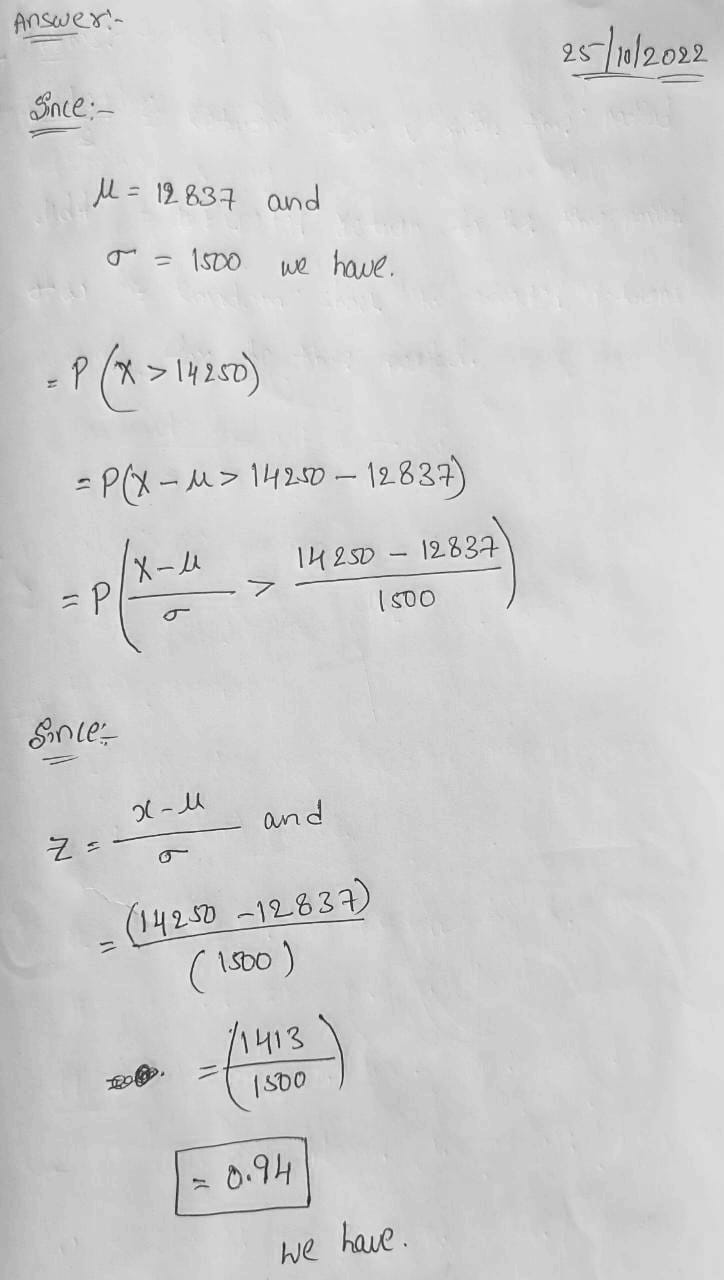 Answer:-
25/10/2022
Since:-
μ = 12837 and
σ = 1500 we have.
= P(X > 14250)
= P(X - μ > 14250 - 12837)
= P((X - μ)/σ > (14250 - 12837)/1500)
Since:-
Z = (x - μ)/σ and
= (14250 - 12837)/(1500)
= (1413/1500)
= 0.94
we have.